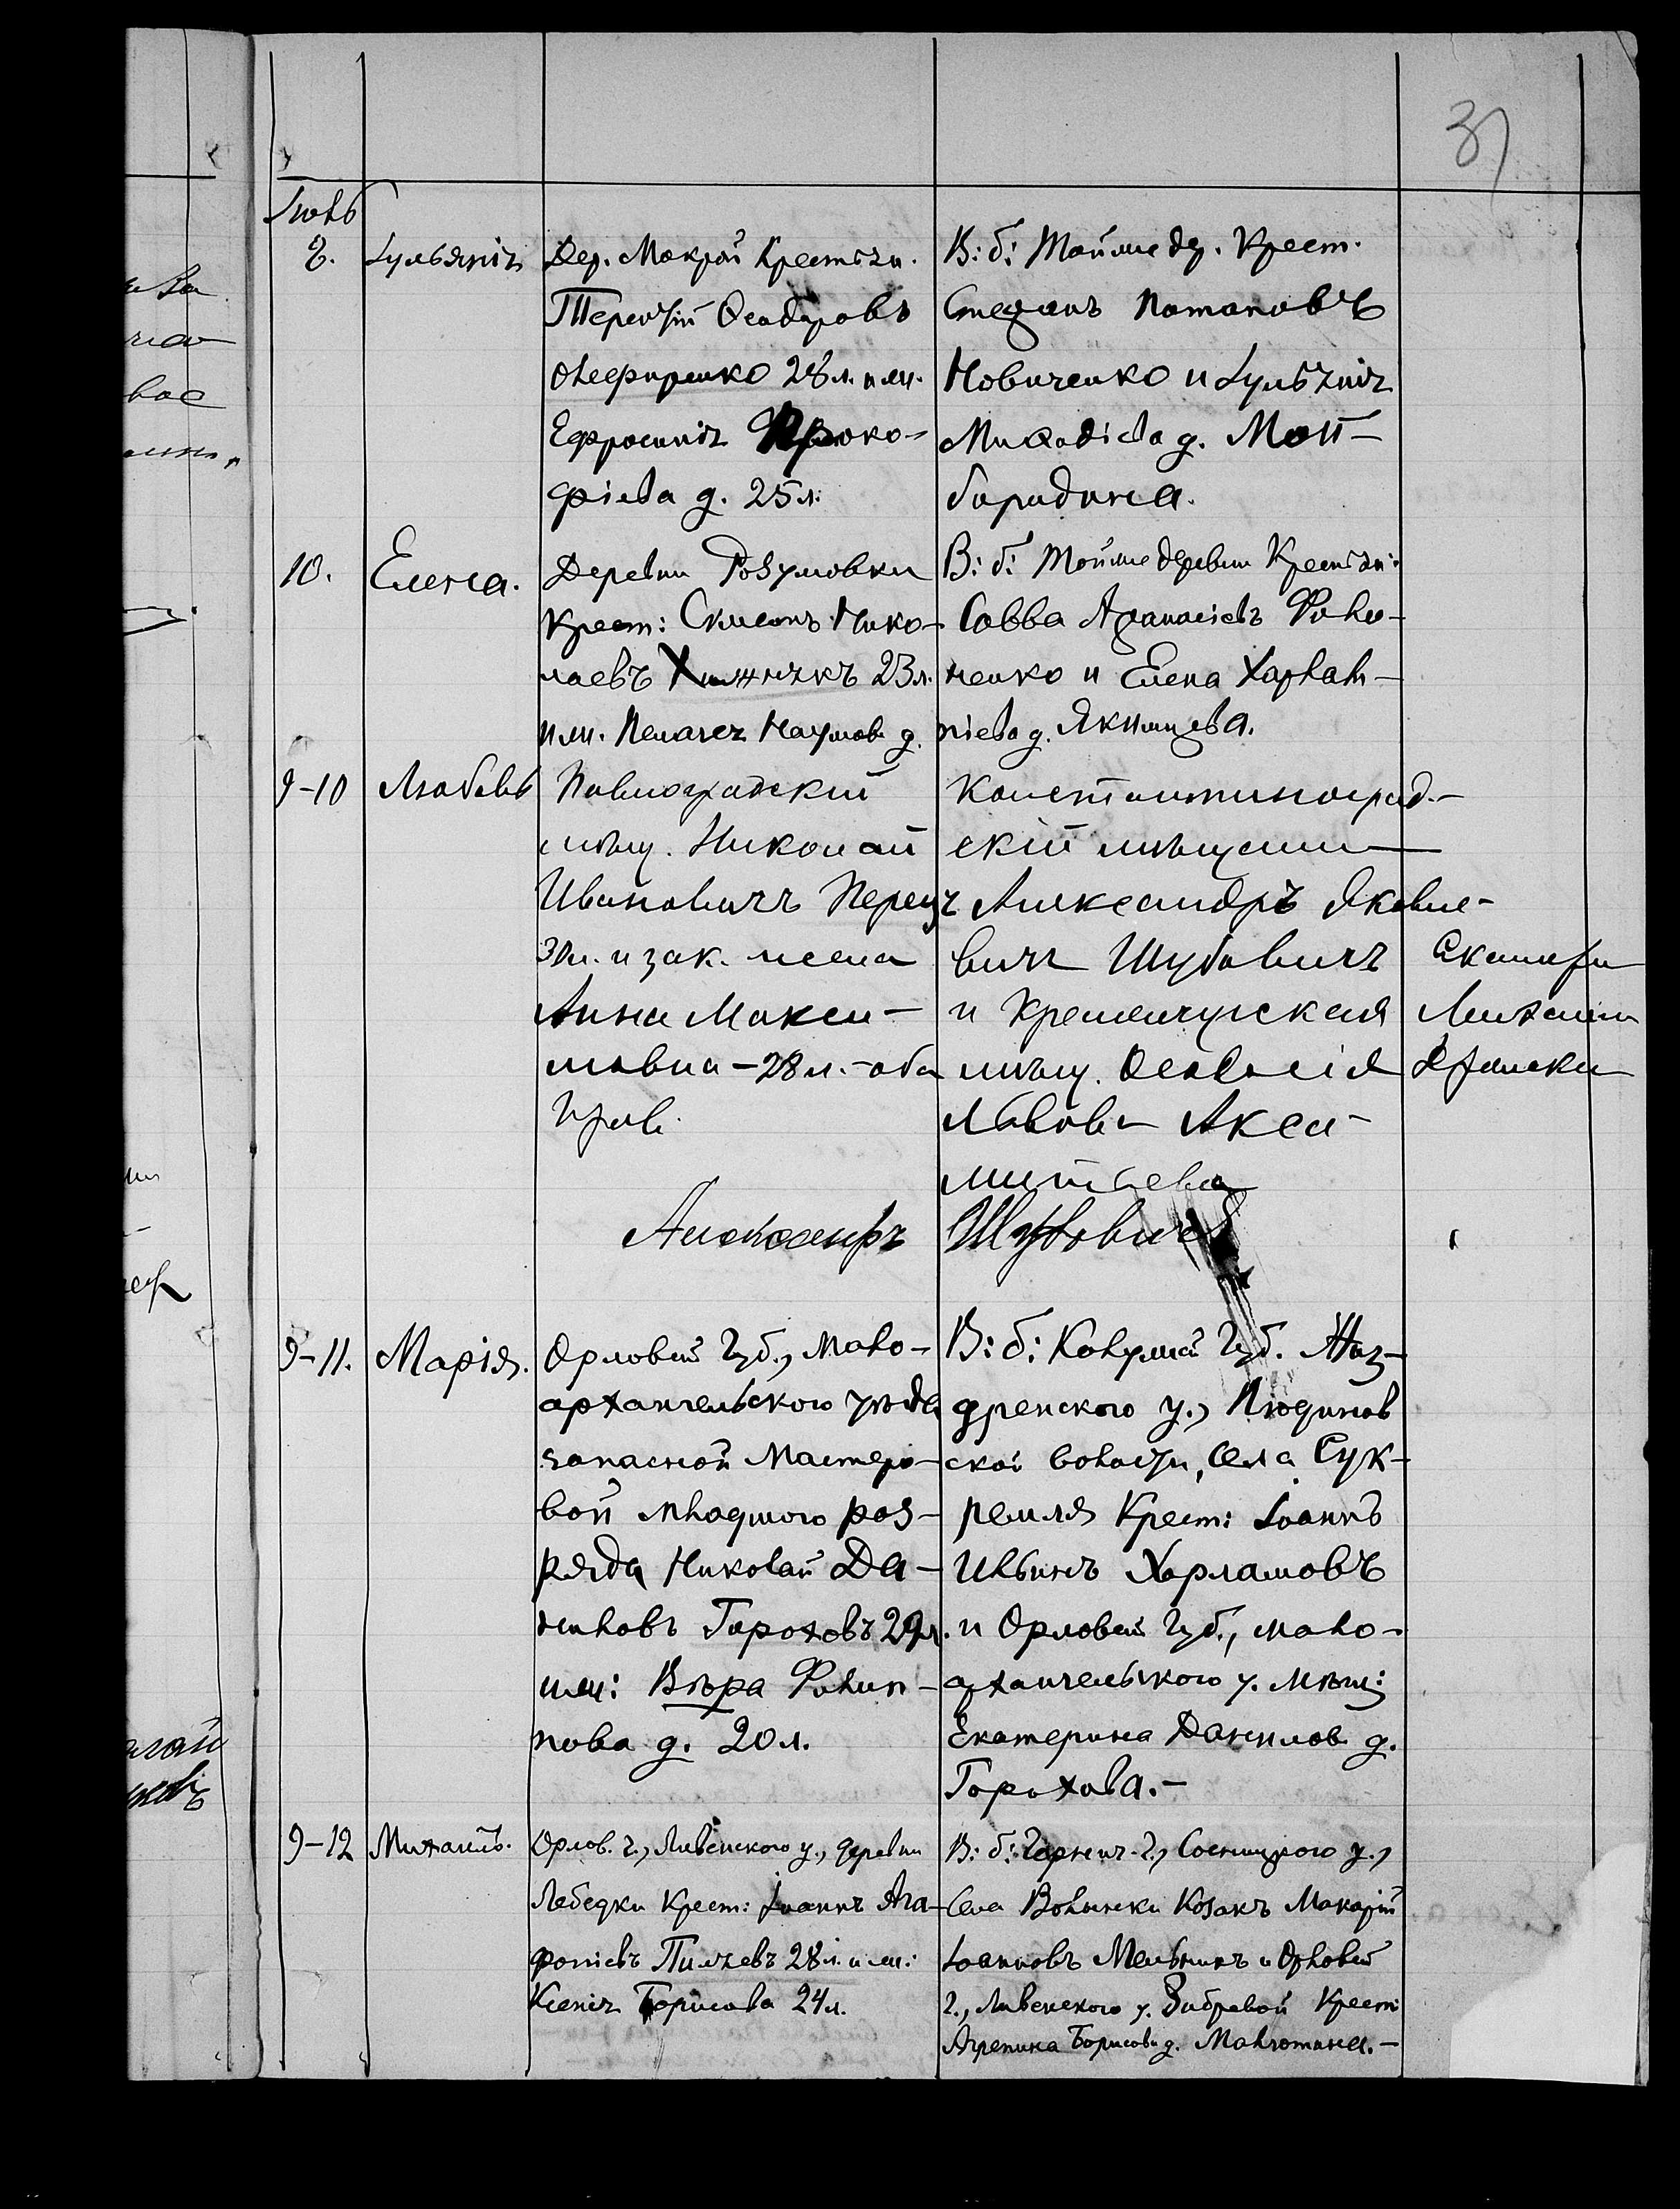 31
Іюнь
9. Іуліанія
Дер. Мокрой Крестьян.
Терентій Ѳеодоровъ
Олефиренко 28 л. и жен.
Евфросинія Проко-
фіева д. 25 л.
В: б: Той же дер. Крест.
Стефанъ Потаповъ
Новиченко и Іуліанія
Миѳодіева д. Мой-
бородина.
10. Елена.
Деревни Розумовки
Крест: Симеонъ Нико-
лаевъ Хижнякъ 23 л.
и жен. Пелагея Наумов. д.
В: б: Той же деревни Крестьян:
Савва Аѳанасіевъ Филе-
ненко и Елена Харлам-
піева д. Якимцева.
9-10 Любовь
Павлоградскій
мѣщ. Николай
Ивановичъ
30 л. и зак. жена
Анна Макси-
мовна - 28 л. - оба
прав.
Константиноград-
скій мѣщанин
Александръ Яковле-
вичъ Шубовичъ
и Кременчугская
мѣщ. Ѳеодосія
Львовна
Александръ Шубовичъ
9-11. Марія.
Орловской Губ., Мало-
архангельского уѣзда
запасной мастеро-
вой младшого раз-
ряда Николай Да-
ниловъ Гороховъ 29 л.
и жен: Вѣра Филип-
пова д. 20 л.
В: б: Калужской Губ. Жиз-
дренского у., Людинов
ской волости, Села Сук-
ремля Крест: Іоаннъ
Ильинъ Харламовъ
и Орловской Губ., мало-
архангельского у. мѣщ:
Екатерина Данилов. д.
Горохова. -
9-12 Михаилъ.
Орлов. г., Ливенского у., деревни
Лебедки Крест: Іоаннъ Ага-
фоніевъ 28 л. и жен:
Ксенія Борисова 24 л.
В: б: Чернич. г., Сосницкого у.,
Села Волынки Козакъ Макарій
Іоанновъ Мельникъ и Орловской
г., Ливенского у. Крест:
Агрепина Борисов. д.